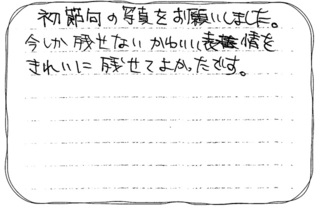 初節句の写真をお願いしました。
今しか残せないかわいい表情を
きれいに残せてよかったです。